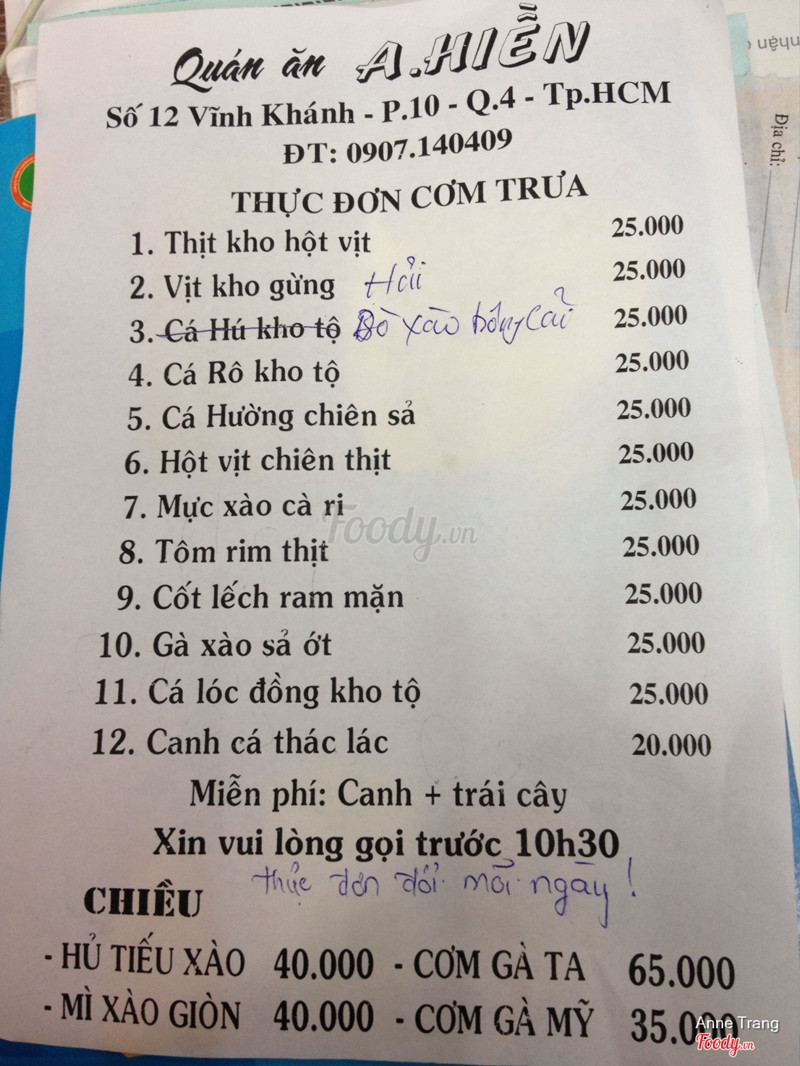 Quán ăn A.HIỀN
Số 12 Vĩnh Khánh - P.10 - Q.4 - Tp.HCM
ĐT: 0907.140409
THỰC ĐƠN CƠM TRƯA
1. Thịt kho hột vịt 25.000
2. Vịt kho gừng Hải 25.000
3. Cá Hú kho tộ Bò xào bông cải 25.000
4. Cá Rô kho tộ 25.000
5. Cá Hường chiên sả 25.000
6. Hột vịt chiên thịt 25.000
7. Mực xào cà ri 25.000
8. Tôm rim thịt 25.000
9. Cốt lếch ram mặn 25.000
10. Gà xào sả ớt 25.000
11. Cá lóc đồng kho tộ 25.000
12. Canh cá thác lác 20.000
Miễn phí: Canh + trái cây
Xin vui lòng gọi trước 10h30
thực đơn đổi mỗi ngày!
CHIỀU
- HỦ TIẾU XÀO 40.000 - CƠM GÀ TA 65.000
- MÌ XÀO GIÒN 40.000 - CƠM GÀ MỸ 35.000
Địa chỉ:
nhận
Foody.vn
Anne Trang
Foody.vn